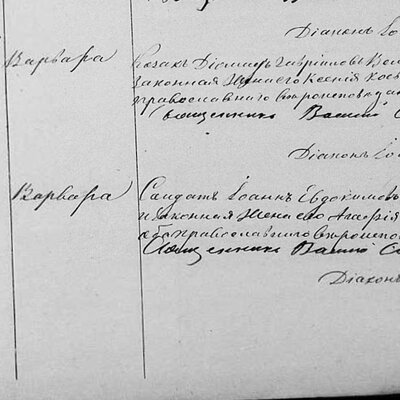 Діаконъ
Варвара
Козакъ Діомидъ Гавріиловъ
законная жена его Ксенія
православнаго вѣроисповѣдан
Священникъ Василій С
Діаконъ
Варвара
Солдатъ Іоаннъ Евдокимовъ
и законная жена его Агафія
оба православнаго вѣроиспов
Священникъ Василій С
Діаконъ